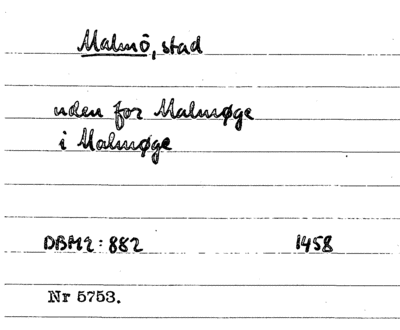 Malmö, stad
uden for Malmøge
i Malmøge
DBM2: 882 1458
Nr 5753.